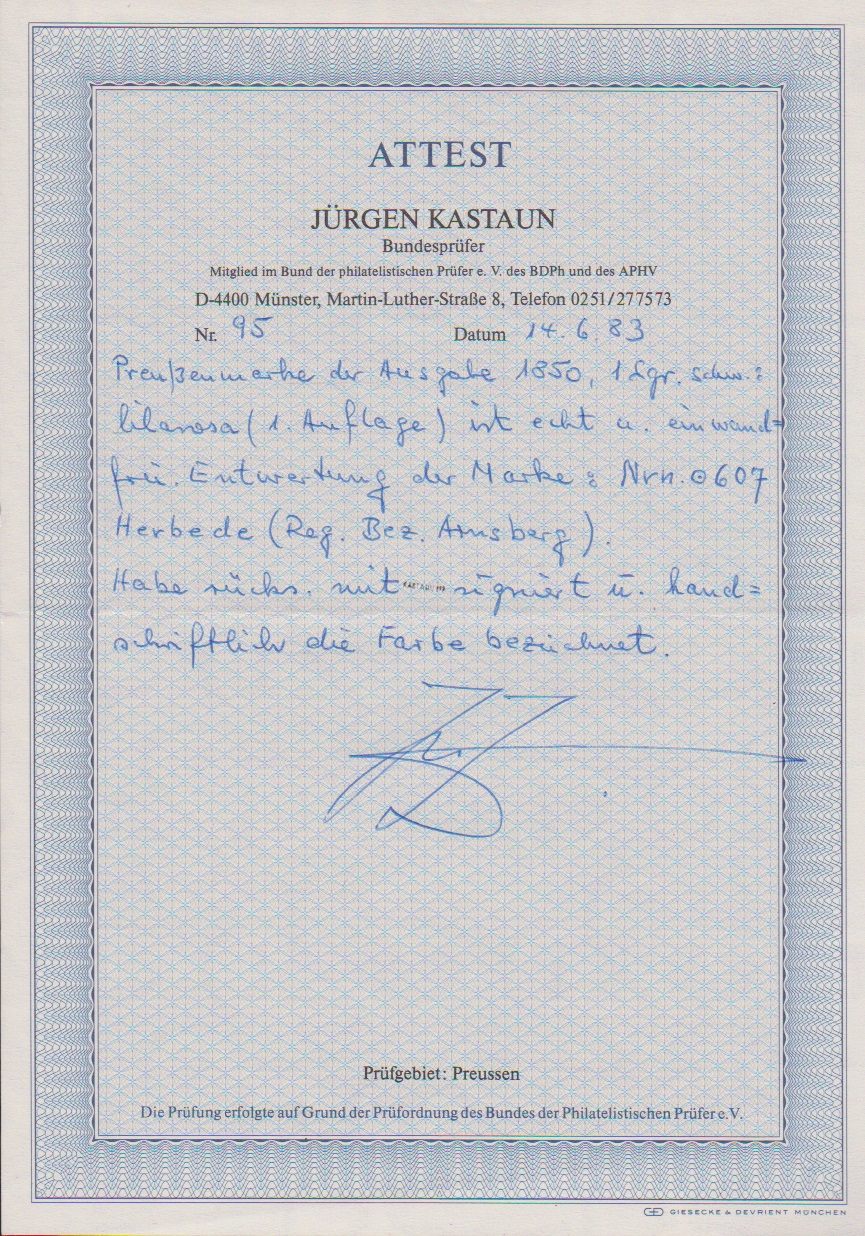 ATTEST
JÜRGEN KASTAUN
Bundesprüfer
Mitglied im Bund der philatelistischen Prüfer e. V. des BDPh und des APHV
D-4400 Münster, Martin-Luther-Straße 8, Telefon 0251/277573
Nr. 95 Datum 14. 6. 83
Preußenmarke der Ausgabe 1850, 1 Sgr. schw.=
lilarosa (1. Auflage) ist echt u. einwand=
frei. Entwertung der Marke: Nrn. ⊙ 607
Herbede (Reg. Bez. Arnsberg).
Habe rücks. mit KASTAUN signiert u. hand=
schriftlich die Farbe bezeichnet.
Prüfgebiet: Preussen
Die Prüfung erfolgte auf Grund der Prüfordnung des Bundes der Philatelistischen Prüfer e.V.
GIESECKE & DEVRIENT MÜNCHEN